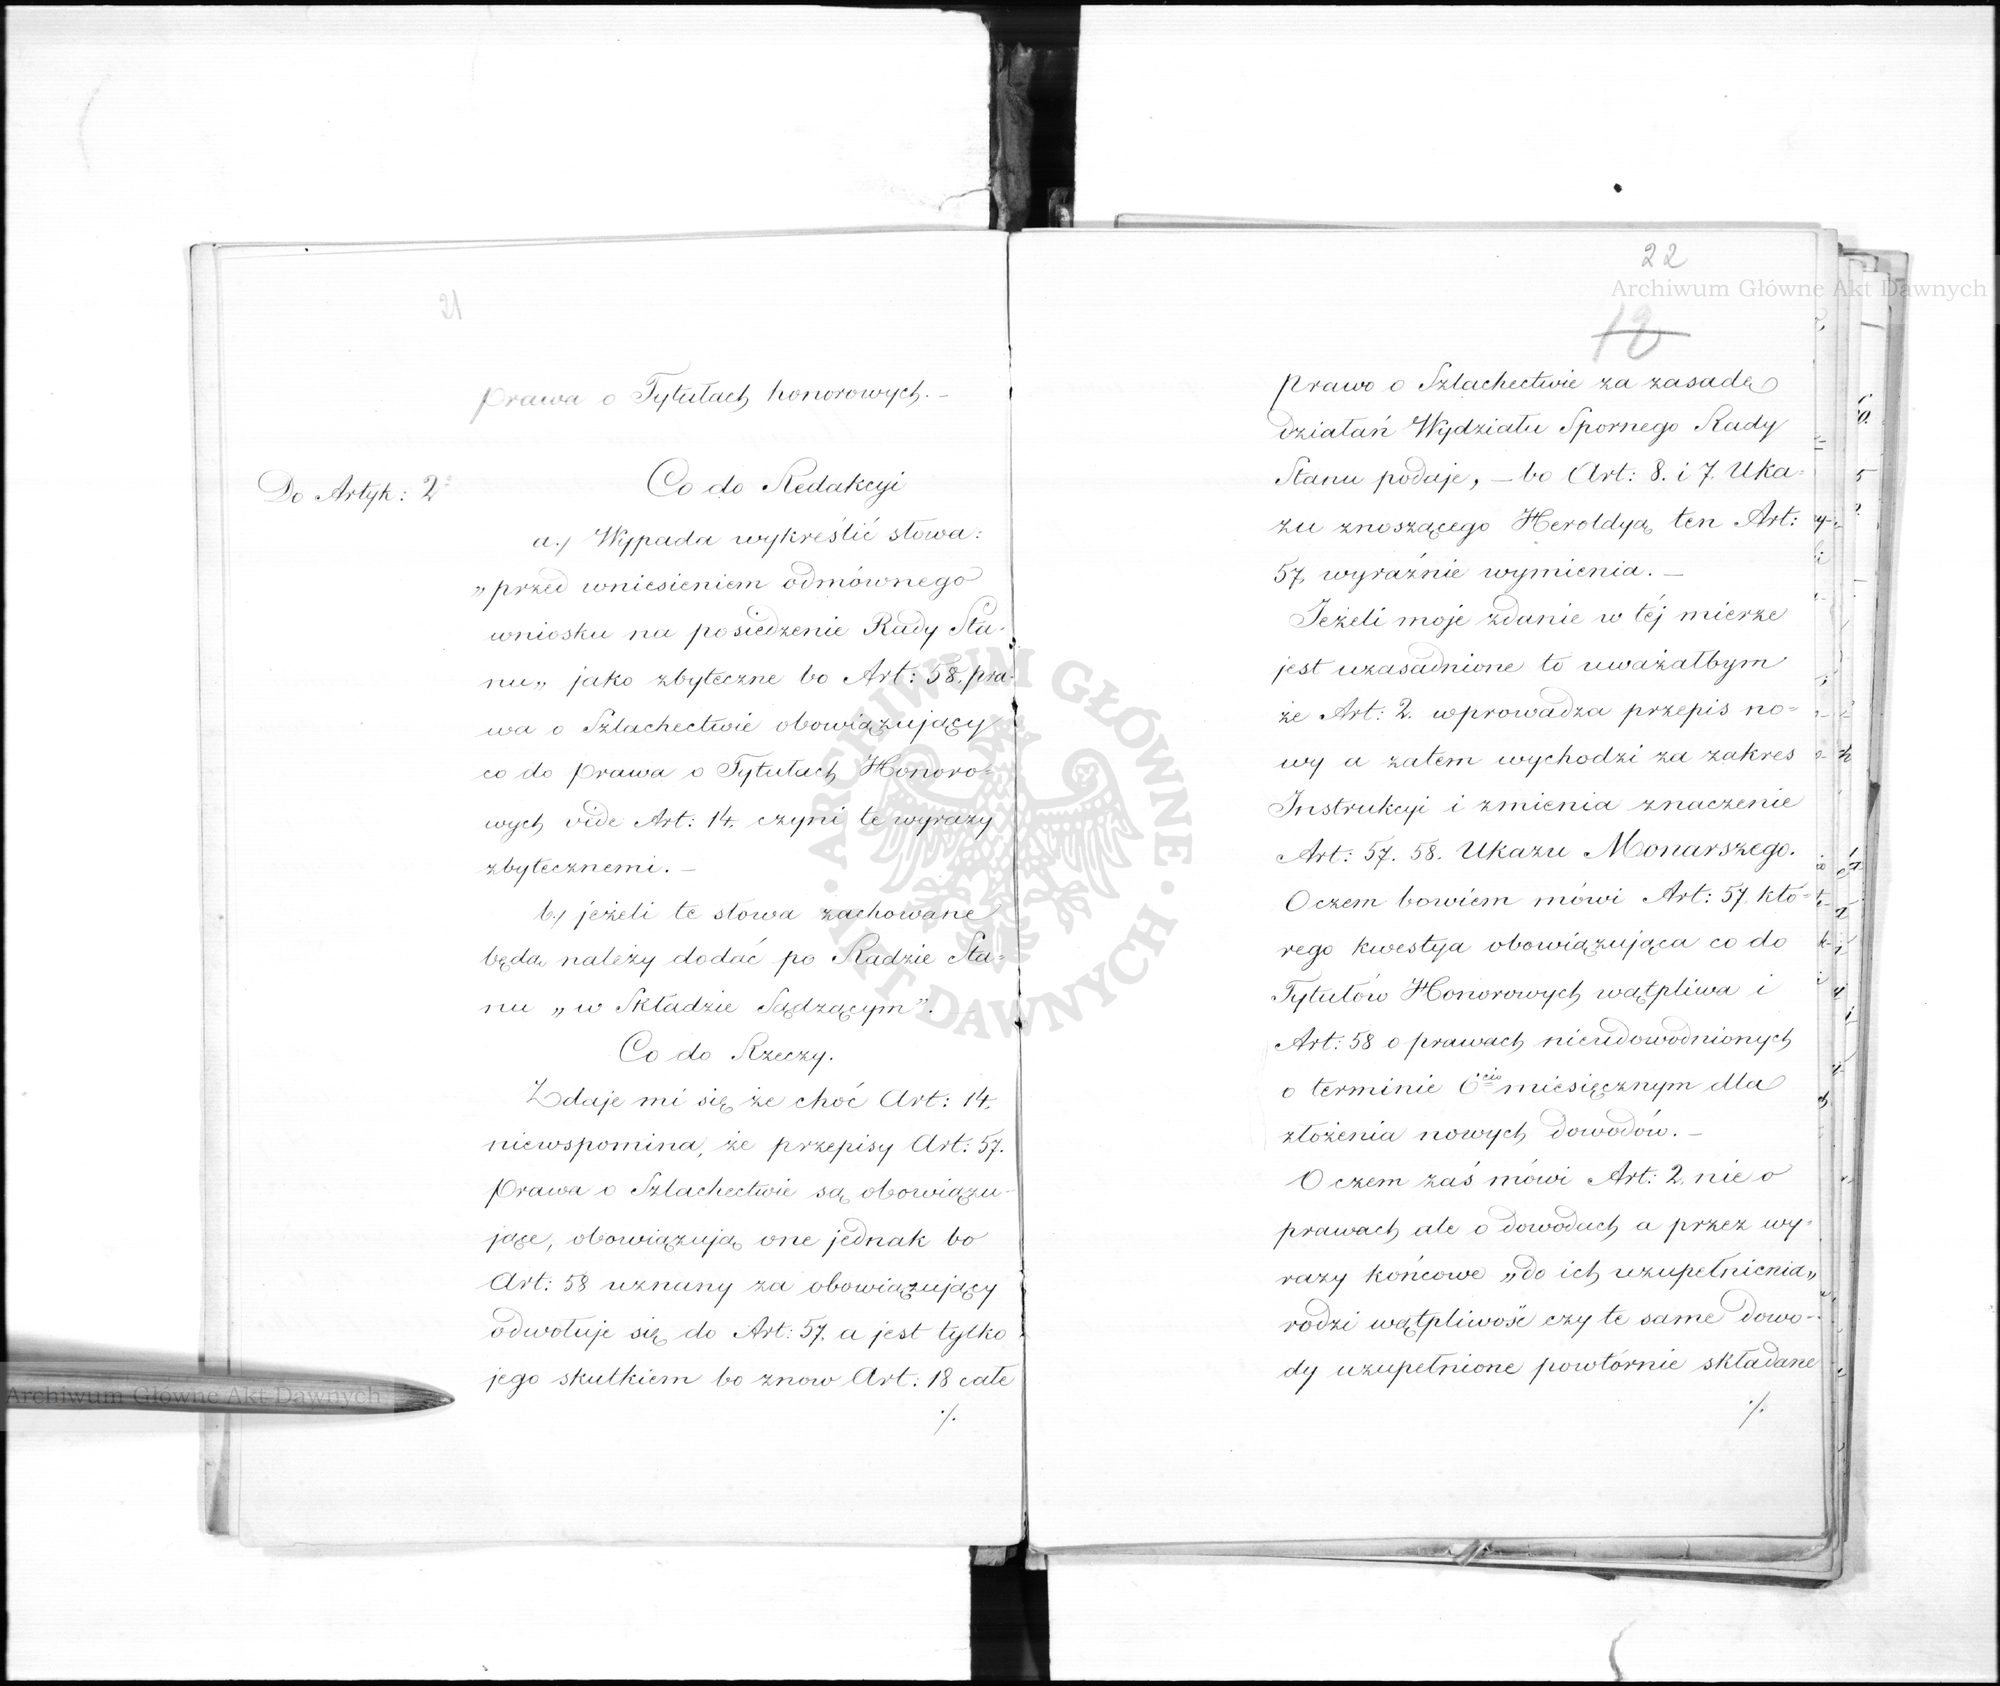 21
prawa o Tytułach honorowych. –
Do Artyk: 2
Co do Redakcyi
a.) Wypada wykreślić słowa:
„przed wniesieniem odmównego
wniosku na posiedzenie Rady Sta-
nu„ jako zbyteczne bo Art: 58. pra-
wa o Szlachectwie obowiązujący
co do prawa o Tytułach Honoro=
wych vide Art: 14. czyni te wyrazy
zbytecznemi. –
b.) jeżeli te słowa zachowane
będą należy dodać po Radzie Sta=
nu „w Składzie Sądzącym”. –
Co do Rzeczy.
Zdaje mi się że choć Art: 14.
niewspomina, że przepisy Art: 57.
prawa o Szlachectwie są obowiązu-
jące, obowiązują one jednak bo
Art: 58 uznany za obowiązujący
odwołuje się do Art: 57. a jest tylko
jego skutkiem bo znow Art: 18 całe
./.
22
18
prawo o Szlachectwie za zasadę
działań Wydziału Spornego Rady
Stanu podaje, – bo Art: 8. i 7. Uka=
zu znoszącego Heroldyą ten Art:
57. wyraźnie wymienia. –
Jeżeli moje zdanie w téj mierze
jest uzasadnione to uważałbym
że Art: 2. wprowadza przepis no=
wy a zatem wychodzi za zakres
Instrukcyi i zmienia znaczenie
Art: 57. 58. Ukazu Monarszego.
O czem bowiem mówi Art: 57. któ=
rego kwestya obowiązująca co do
Tytułów Honorowych wątpliwa i
Art: 58 o prawach nieudowodnionych
o terminie 6cio miesięcznym dla
złożenia nowych dowodów. –
O czem zaś mówi Art: 2. nie o
prawach ale o dowodach a przez wy=
razy końcowe „do ich uzupełnienia„
rodzi wątpliwość czy te same dowo-
dy uzupełnione powtórnie składane
./.
Archiwum Główne Akt Dawnych
ARCHIWUM GŁÓWNE
AKT DAWNYCH
Archiwum Główne Akt Dawnych